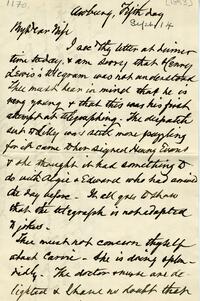 1170.
[1883]
Awbury, Fifth day
Sept 14
My Dear Wife
I see thy letter at dinner
time today, & am sorry that Henry
Lewis's telegram was not understood.
Thee must bear in mind that he is
very young & that this was his first
attempt at telegraphing. The dispatch
sent to Milly was still more puzzling
for it came to her signed Henry Evans
& she thought it had something to
do with Algie & Edward who had arrived
the day before. It all goes to show
that the telegraph is not adapted
to jokes.
Thee must not concern thyself
about Carrie. She is doing splen-
didly. The doctor & nurse are de-
lighted & I have no doubt that